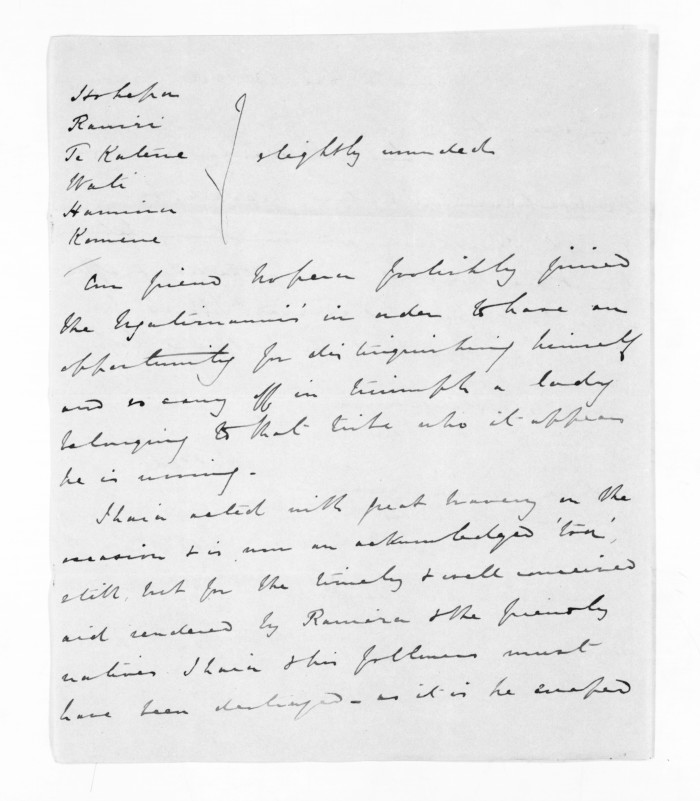 Hohepa
Ramiri
Te Katene
Wati
Hamiora
Komene
slightly wounded
Our friend Hopera foolishly joined
the Ngatimaniu's in order to have an
opportunity for distinguishing himself
and so carry off in triumph a lady
belonging to that tribe who it appears
he is wooing -
Ihaia acted with great bravery on the
occasion & is now an acknowledged 'toa',
still, but for the timely & well conceived
aid rendered by Ramera & the friendly
natives Ihaia & his followers must
have been destroyed - as it is he escaped